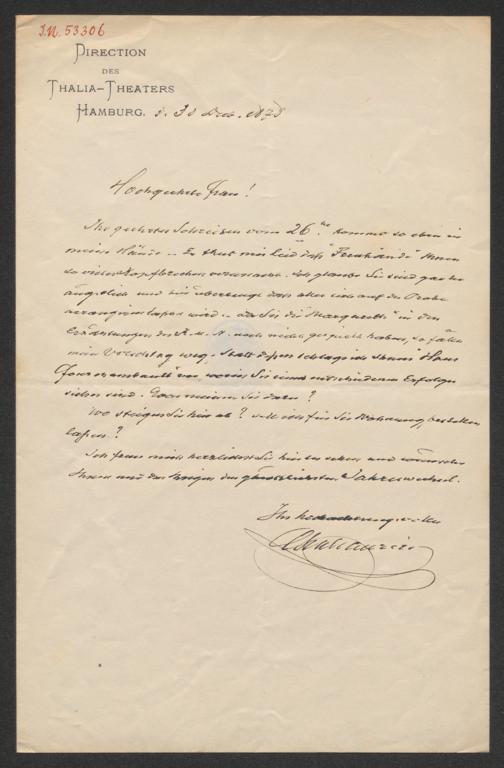 J.N. 53306
DIRECTION
DES
THALIA-THEATERS
HAMBURG. d. 30 Dec. 1878
Hochgeehrte Frau!
Ihr geehrtes Schreiben vom 26ten kommt so eben in
meine Hände. Es thut mir leid daß "Ihnen
so viel Kopfbrechen verursacht. Ich glaube Sie sind gar zu
ängstlich und bin überzeugt daß alles sich auf der Probe
arrangiren lassen wird. da Sie die "Marquise" in den
noch nicht gespielt haben, so fällt
mein Vorschlag weg. Statt dessen schlage ich Ihnen "Haus
" vor worin Sie eines entschiedenen Erfolges
sicher sind. Was meinen Sie dazu?
Wo steigen Sie hier ab? soll ich für Sie Wohnung bestellen
lassen?
Ich freue mich herzlichst Sie hier zu sehen und wünsche
Ihnen und den Ihrigen den glücklichsten Jahreswechsel.
Ihr hochachtungsvoller
Ch Maurice